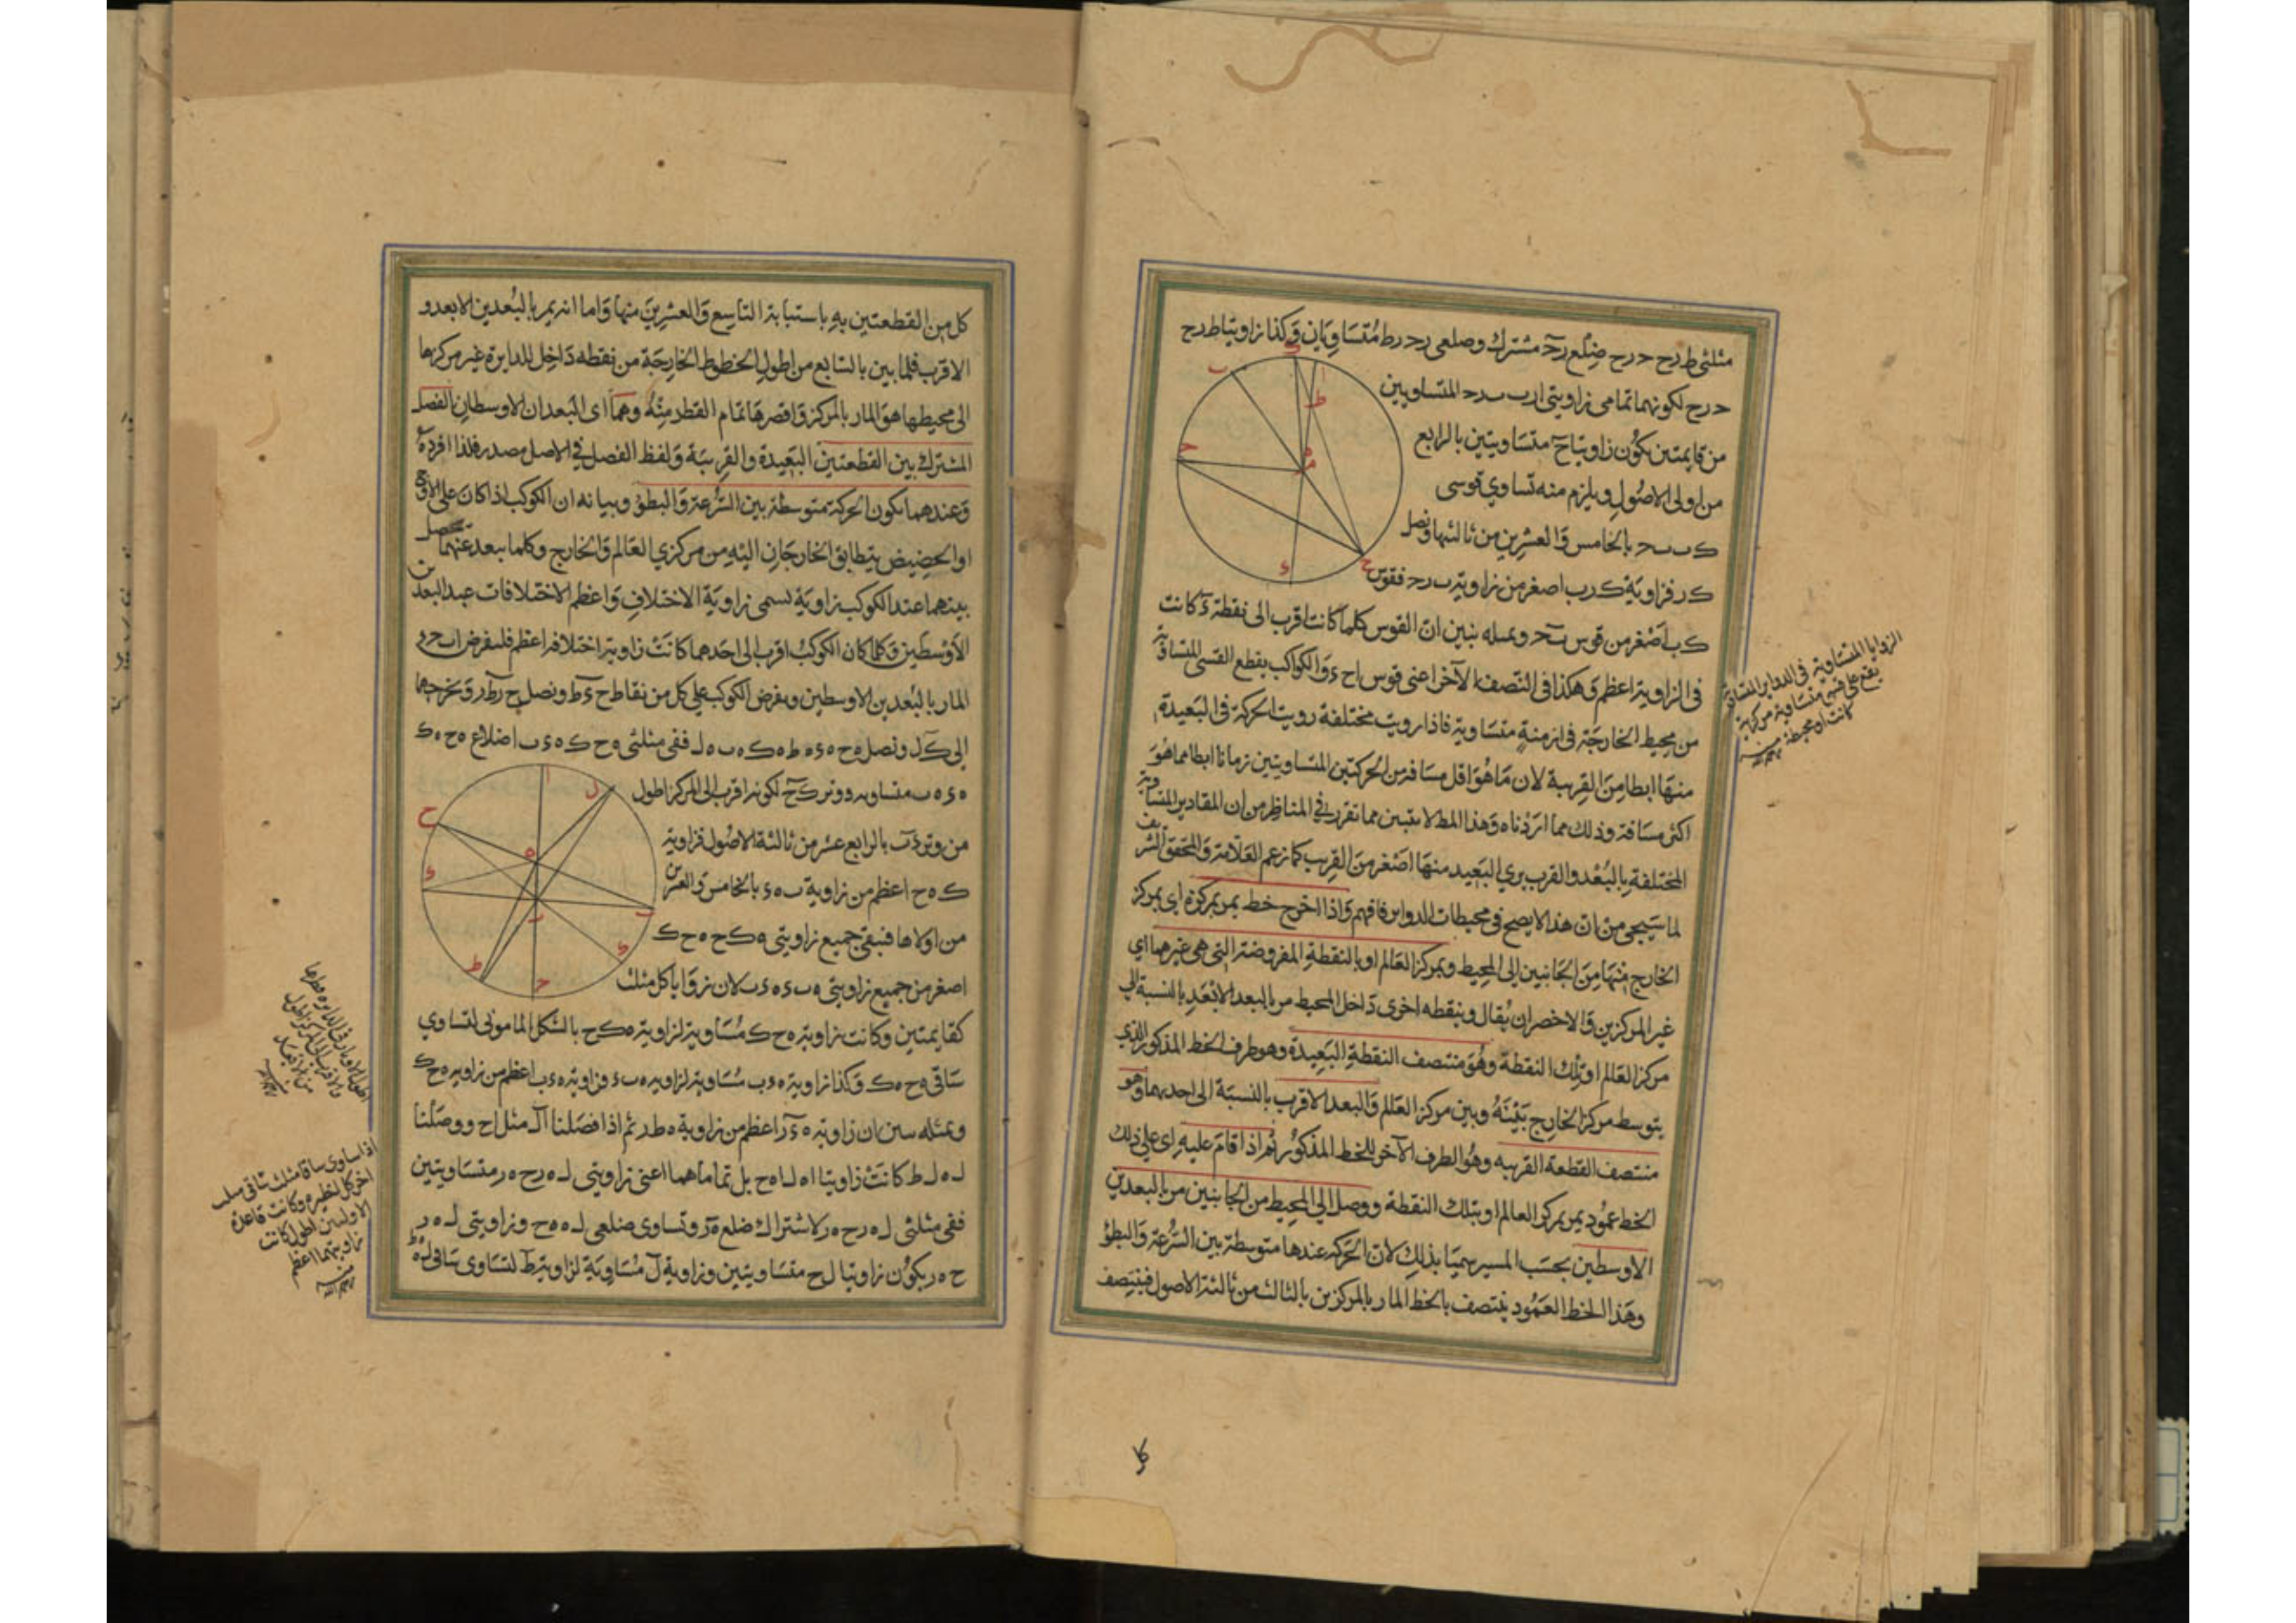 مثلثى ط ر ح ح ر ح ضلع رح مشترك وصلعى رح رط متساويان وكذا زاويتا ط ر ح
ح ر ح لكونهما تمامى زاويتى ارب ب ر ح المتساويين
من قايمتين يكون زاويتا ح متساويتين بالرابع
من اولى الاصول ويلزم منه تساوي قوسى
ك ب ب ح بالخامس والعشرين من ثالثها ونصل
ك ر فزاوية ك ر ب اصغر من زاوية ب ر ح فقوس
ك ب اصغر من قوس ب ح وبمثله نبين ان القوس كلما كانت اقرب الى نقطة ء كانت
فى الزاوية اعظم وهكذا فى النصف الآخر اعنى قوس ا ح ء والكواكب يقطع القسى المتساوية
من محيط الخارجة فى ازمنة متساوية فاذا رويت مختلفة رويت الحركة فى البعيدة
منها ابطا من القريبة لان ما هو اقل مسافة من الحركتين المتساويتين زمانا ابطا مما هو
اكثر مسافة وذلك مما اردناه وهذا المط لا يتبين مما تقرر في المناظر من ان المقادير المتساوية
المختلفة بالبعد والقرب يري البعيد منها اصغر من القريب كما زعم العلامة والمحقق الشريف
لما سيجئ من ان هذا لا يصح فى محيطات الدواير فافهم واذا اخرج خط يمر بمركزه اى بمركز
الخارج منها من الجانبين الى المحيط وبمركز العالم او بالنقطة المفروضة التى هى غيرهما اى
غير المركزين والاخصر ان يقال وبنقطه اخرى داخل المحيط مر بالبعد الابعد بالنسبة الي
مركز العالم او تلك النقطة وهو منتصف النقطة البعيدة وهو طرف الخط المذكور الذي
يتوسط مركز الخارج بينه وبين مركز العالم والبعد الاقرب بالنسبة الى احديهما وهو
منتصف القطعة القريبه وهو الطرف الآخر للخط المذكور ثم اذا اقام عليه اى على ذلك
الخط عمود يمر بمركز العالم او بتلك النقطة ووصل الي المحيط من الجانبين مر بالبعدين
الاوسطين بحسب المسير سميا بذلك لان الحركه عندها متوسطة بين السرعة والبطؤ
وهذا الخط العمود ينتصف بالخط المار بالمركزين بالثالث من ثالثة الاصول فينتصف
الزوايا المتساوية فى الدواير المتساوية
يقع على قسى متساوية مركزية
كانت او محيطية
كل من القطعتين به باستبانة التاسع والعشرين منها واما انه يمر بالبعدين الابعد و
الاقرب فلما بين بالسابع من اطول الخطوط الخارجة من نقطه داخل للدايرة غير مركزها
الى محيطها هو المار بالمركز واقصرها تمام القطر منه وهما اى البعدان الاوسطان الفصل
المشترك بين القطعتين البعيدة والقريبة ولفظ الفصل في الاصل مصدر فلذا افرده
وعندهما يكون الحركة متوسطة بين السرعة والبطؤ وبيانه ان الكوكب اذا كان على الاوج
او الحضيض يتطابق الخارجان اليه من مركزي العالم والخارج وكلما يبعد عنهما يحصل
بينهما عند الكوكب زاوية تسمى زاوية الاختلاف واعظم الاختلافات عند البعدين
الاوسطين وكلما كان الكوكب اقرب الى احدهما كانت زاوية اختلافه اعظم فلنفرض ا ب ح ء
المار بالبعدين الاوسطين ونفرض الكوكب علي كل من نقاط ح ء ط ونصل ح ر ط ر ونخرجهما
الى ك ل ونصل ه ح ه ء ه ط ه ك ه ب ه ل ففى مثلثى ه ح ك ه ء ب اضلاع ه ح ه ك
ه ء ه ب متساويه ووتر ك ح لكونه اقرب الى المركز اطول
من وتر ء ب بالرابع عشر من ثالثة الاصول فزاوية
ك ه ح اعظم من زاوية ب ه ء بالخامس والعشرين
من اولاها فنبقى جميع زاويتى ه ك ح ه ح ك
اصغر من جميع زاويتى ه ب ء ه ء ب لان زوايا كل مثلث
كقايمتين وكانت زاوية ه ح ك مساوية لزاوية ه ك ح بالشكل المامونى لتساوي
ساقى ه ح ه ك وكذا زاوية ه ء ب مساوية لزاويه ه ب ء فزاوية ه ء ب اعظم من زاويه ه ح ك
وبمثله نبين ان زاوية ه ء ر اعظم من زاوية ه ط ر ثم اذا فصلنا ا ل مثل ا ح ووصلنا
ل ه ل ط كانت زاويتا ا ه ل ا ه ح بل تماماهما اعنى زاويتى ل ه ر ح ه ر متساويتين
ففى مثلثى ل ه ر ح ه ر لاشتراك ضلع ه ر وتساوى ضلعى ل ه ه ح وزاويتى ل ه ر
ح ه ر يكون زاويتا ل ح متساويتين وزاوية ل مساوية لزاوية ط لتساوى ساقى ل ه ه ط
اطول الاوتار فى الدايره قطرها
والاقرب الى المركز اطول
من الابعد
اذا ساوى ساقا مثلث ساقى مثلث
اخر كل لنظيره وكانت قاعدة
الاولين اطول كانت
زاويتهما اعظم